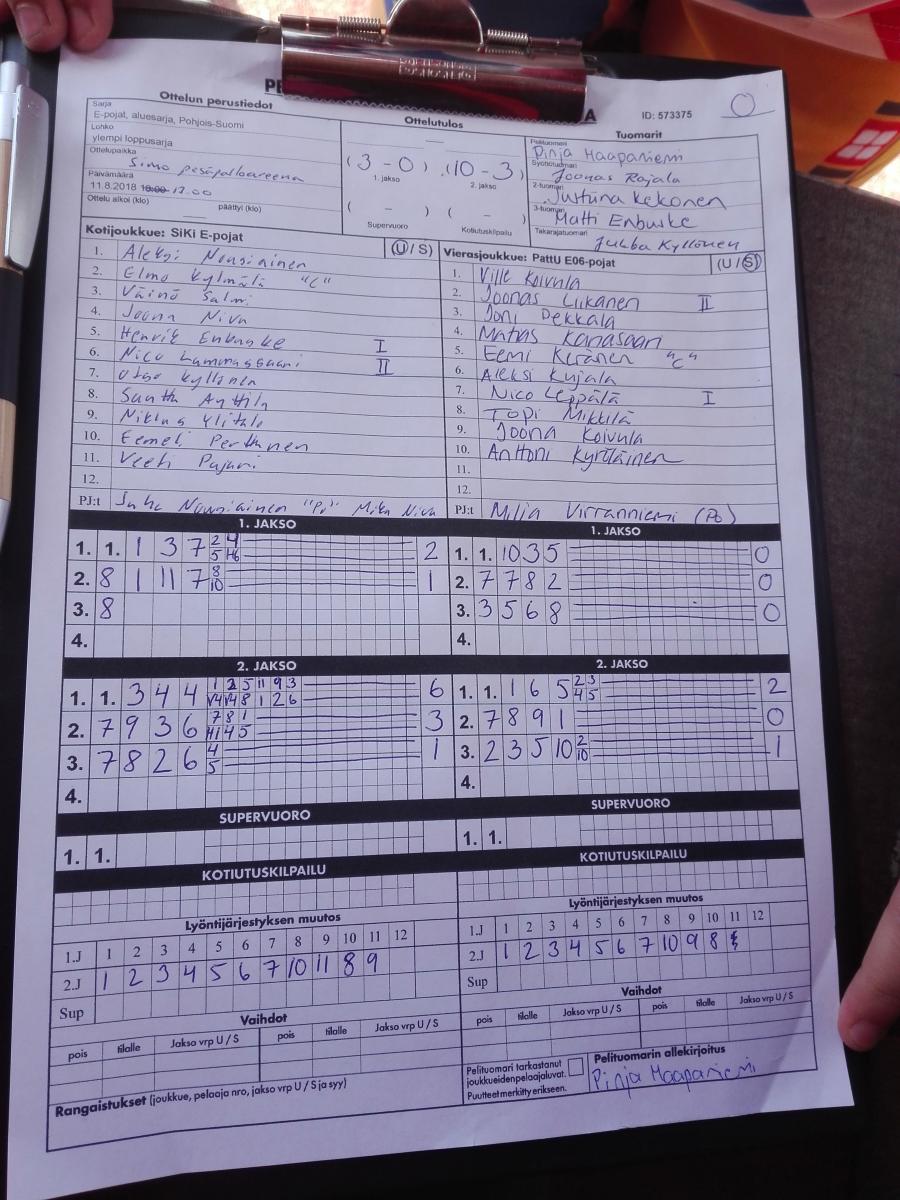 ID: 573375
Ottelun perustiedot
Sarja
E-pojat, aluesarja, Pohjois-Suomi
Lohko
ylempi loppusarja
Ottelupaikka
Simo pesäpalloareena
Päivämäärä
11.8.2018 18:00 12.00
Ottelu alkoi (klo) päättyi (klo)
Ottelutulos
(3-0) (10-3)
1. jakso 2. jakso
( - ) ( - )
Supervuoro Kotiutuskilpailu
Tuomarit
Pelituomari
Pinja Haapaniemi
Syöttötuomari
Joonas Rajala
2-tuomari
Justiina Kekonen
3-tuomari
Matti Enbuske
Takarajatuomari
Jukka Kyllönen
Kotijoukkue: SiKi E-pojat (U/S)
1. Aleksi Nousiainen
2. Elmo Kylmälä "C"
3. Väinö Salmi
4. Joona Niva
5. Henrik Enbuske I
6. Nico Lammassaari II
7. Otso Kyllönen
8. Santtu Anttila
9. Niklas Ylitalo
10. Eemeli Perttunen
11. Veeti Pajari
12.
PJ:t Juha Nousiainen "Po" Mika Niva
Vierasjoukkue: PattU E06-pojat (U/S)
1. Ville Koivula
2. Joonas Liikanen II
3. Joni Pekkala
4. Matias Kanasaari
5. Eemi Keränen "C"
6. Aleksi Kujala
7. Nico Leppälä I
8. Topi Mikkilä
9. Joona Koivula
10. Anttoni Kyröläinen
11.
12.
PJ:t Milja Virranniemi (Po)
1. JAKSO
1. 1. 1 3 7 2 4 2
5 46
2. 8 1 11 7 8 1
10
3. 8
4.
1. JAKSO
1. 1. 10 3 5 0
2. 7 7 8 2 0
3. 3 5 6 8 0
4.
2. JAKSO
1. 1. 3 4 4 1 2 5 11 9 3 6
8 1 2 6
2. 7 9 3 6 7 8 1 3
4 5
3. 7 8 2 6 4 1
5
4.
2. JAKSO
1. 1. 1 6 5 2 3 2
4 5
2. 7 8 9 1 0
3. 2 3 5 10 2 1
10
4.
SUPERVUORO
1. 1.
SUPERVUORO
1. 1.
KOTIUTUSKILPAILU
KOTIUTUSKILPAILU
Lyöntijärjestyksen muutos
1.J 1 2 3 4 5 6 7 8 9 10 11 12
2.J 1 2 3 4 5 6 7 10 11 8 9
Sup
Lyöntijärjestyksen muutos
1.J 1 2 3 4 5 6 7 8 9 10 11 12
2.J 1 2 3 4 5 6 7 10 9 8
Sup
Vaihdot
pois tilalle Jakso vrp U / S pois tilalle Jakso vrp U / S
Vaihdot
pois tilalle Jakso vrp U / S pois tilalle Jakso vrp U / S
Rangaistukset (joukkue, pelaaja nro, jakso vrp U / S ja syy)
Pelituomari tarkastanut
joukkueiden pelaajaluvat.
Puutteet merkitty erikseen.
Pelituomarin allekirjoitus
Pinja Haapaniemi